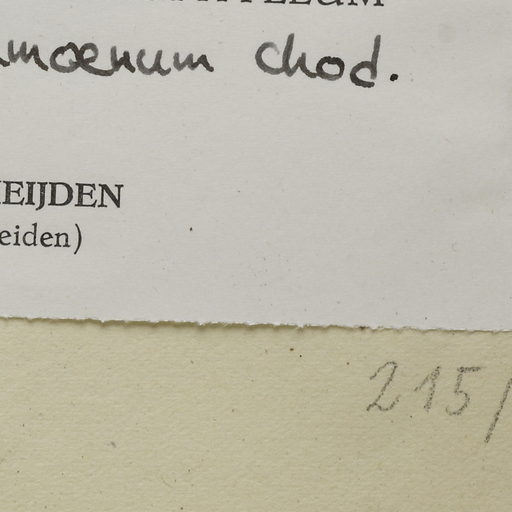 amoenum Chod.
EIJDEN
eiden)
215/